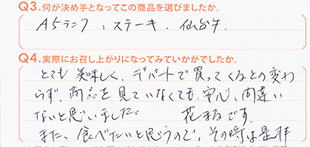 Q3.何が決め手となってこの商品を選びましたか。
A5ランク、ステーキ、仙台牛
Q4.実際にお召し上がりになってみていかがでしたか。
とても美味しく、デパートで買ってくるのと変わ
らず、商品を見ていなくても、安心、間違い
ないと思いました。 花まるです。
また、食べたいと思うので、その時は是非